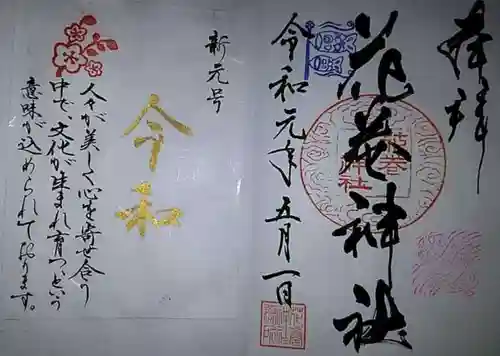 奉拝
花巻神社
花巻
神社
令和元年五月一日
新元号
令和
人々が美しく心を寄せ合う
中で、文化が生まれ育つという
意味が込められております。